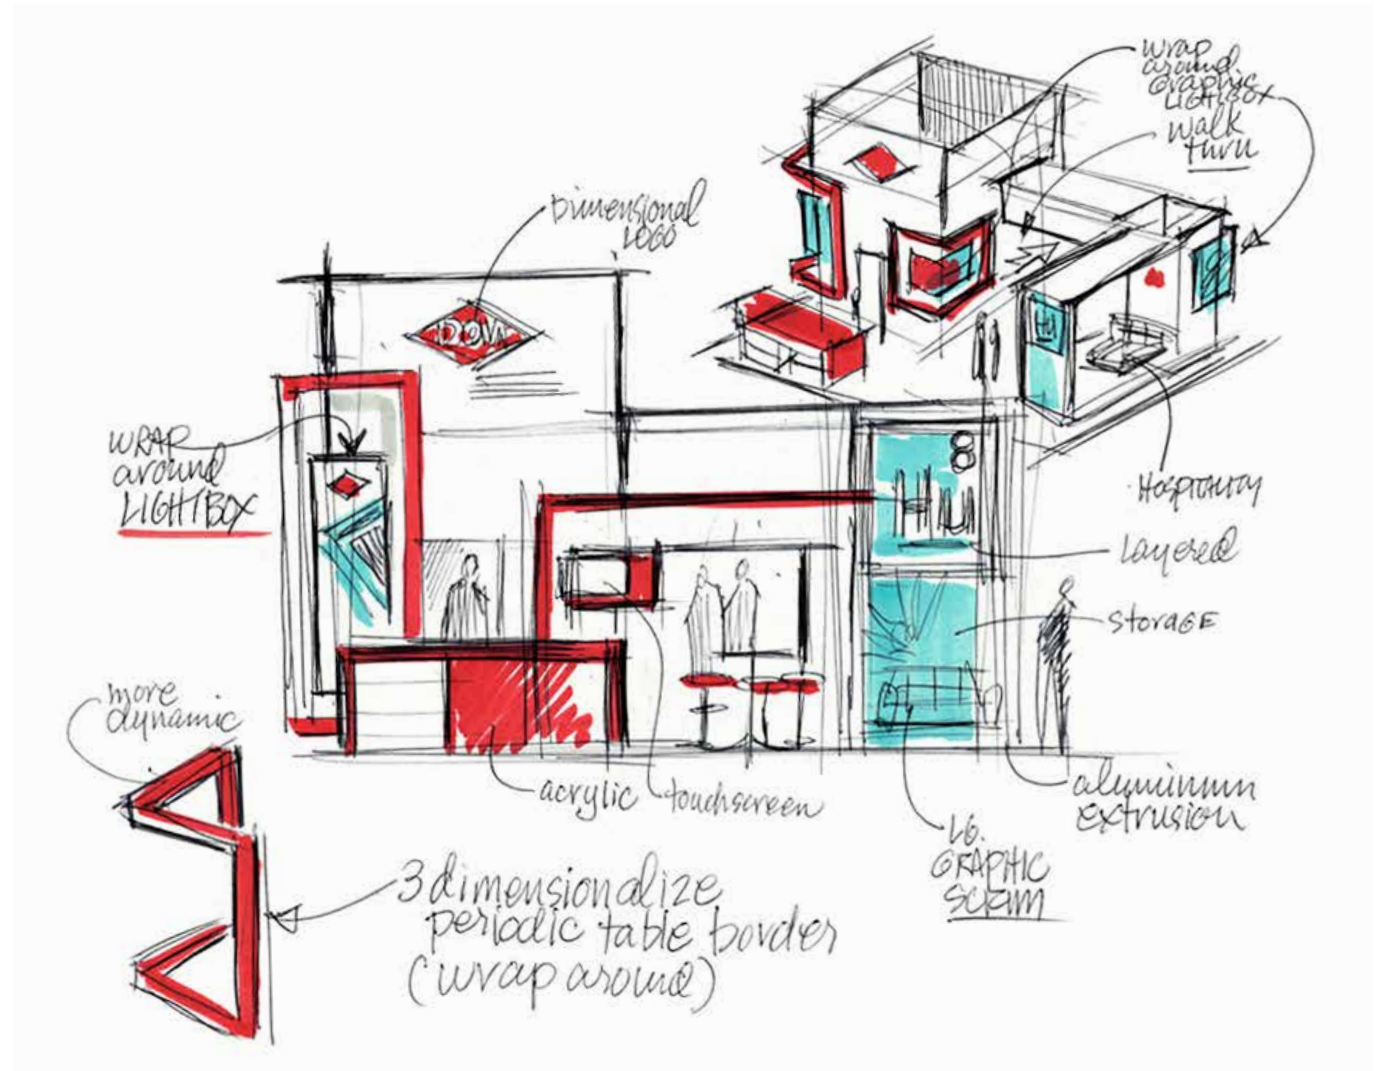 wrap
around
Graphic
LIGHTBOX
walk
thru
Dimensional
LOGO
DOW
WRAP
around
LIGHTBOX
Hu
Hospitality
8
Hu
Layered
Storage
more
dynamic
acrylic
touchscreen
aluminum
extrusion
LG.
GRAPHIC
SCRIM
3 dimensionalize
periodic table border
(wrap around)